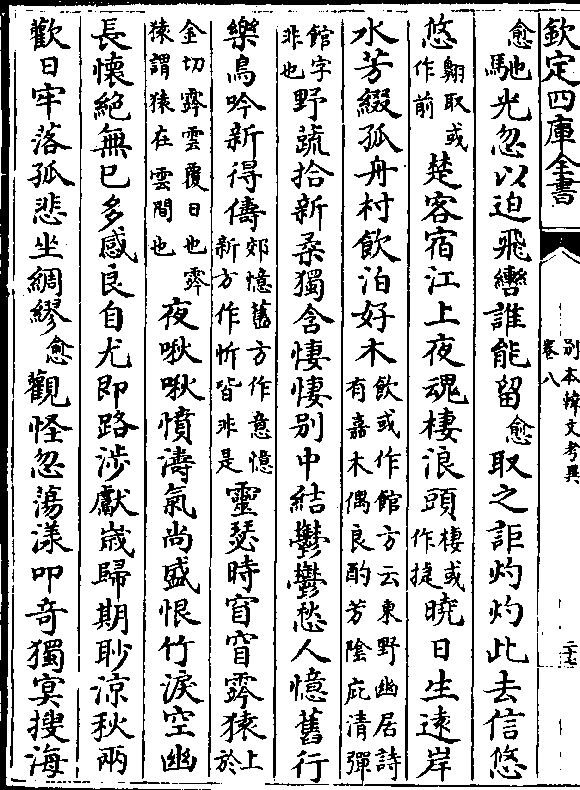 欽定四庫全書
別本韓文考異
卷八
二十七
愈馳光忽以迫飛轡誰能留愈取之詎灼灼此去信悠
悠翺取或作前楚客宿江上夜魂棲浪頭棲或作捷曉日生遠岸
水芳綴孤舟村飲泊好木飲或作館方云東野幽居詩有嘉木偶良酌芳陰庇清彈
館字非也野蔬拾新桑獨含悽悽別中結鬱鬱愁人憶舊行
樂鳥吟新得儔郊憶舊方作意憶新方作忻皆非是靈瑟時窅窅霠猿上於
金切霠雲覆日也霠猿謂猿在雲間也夜啾啾憤濤氣尚盛恨竹淚空幽
長懷絕無已多感良自尤即路涉獻歲歸期眇涼秋兩
歡日牢落孤悲坐綢繆愈觀怪忽蕩漾叩奇獨冥搜海